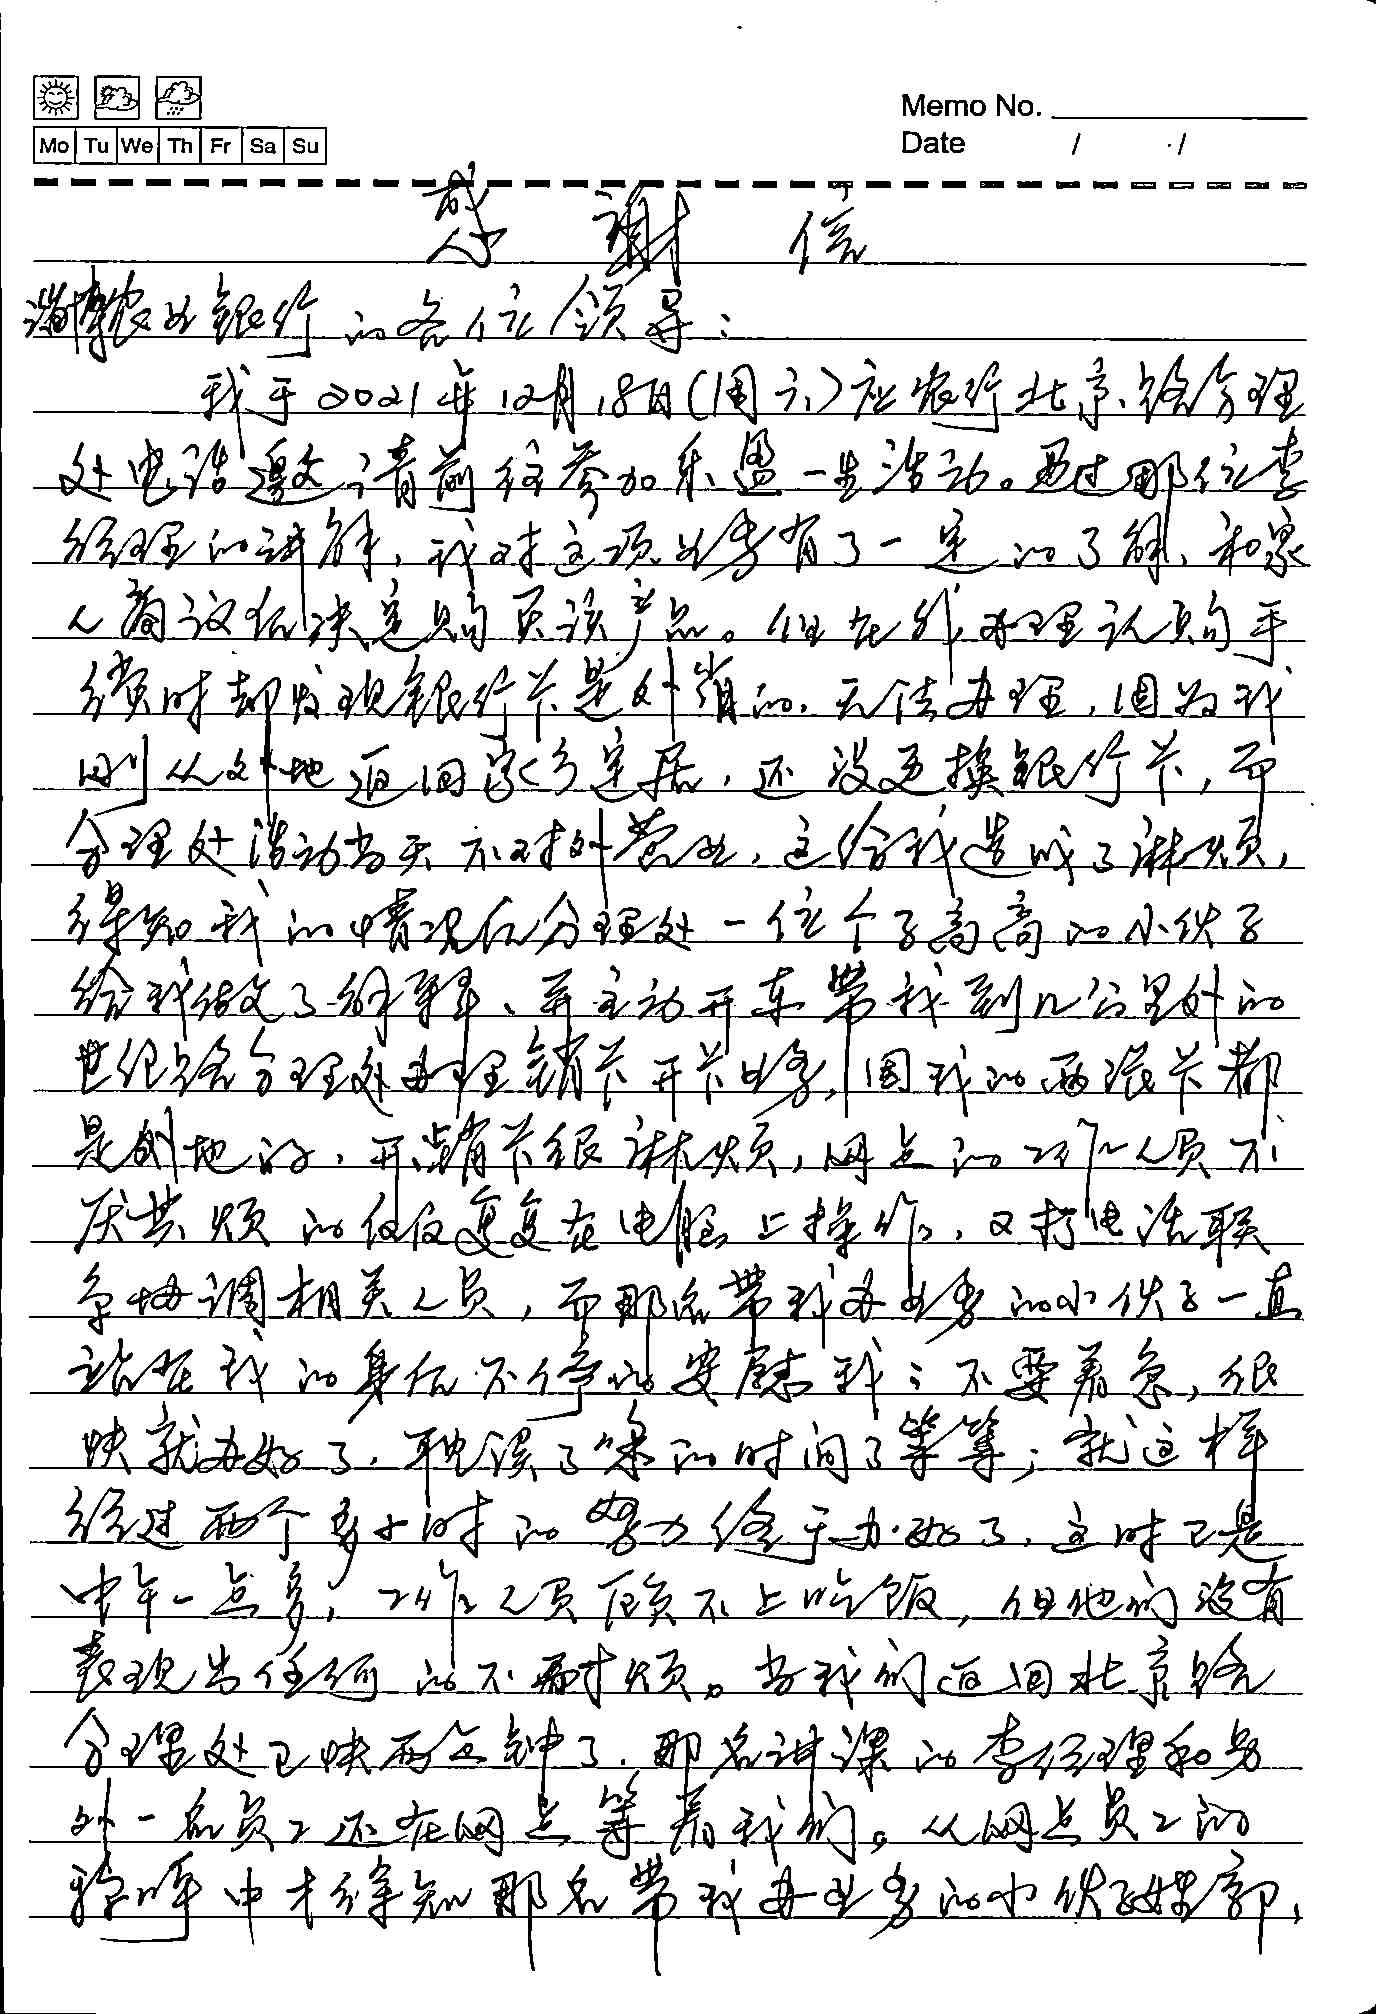 Memo No.
Mo Tu We Th Fr Sa Su
Date / /
感谢信
淄博农业银行的各位领导：
我于2021年12月18日(周六)应农行北京路分理
处电话邀请前往参加乐盈一生活动。通过那位李
经理的讲解，我对这项业务有了一定的了解，和家
人商议后决定购买该产品。但在我办理认购手
续时却发现银行卡是外省的，无法办理，因为我
刚从外地返回家乡定居，还没更换银行卡，而
分理处活动当天不对外营业，这给我造成了麻烦，
得知我的情况后分理处一位个子高高的小伙子
给我做文了解释、并主动开车带我到几公里外的
世纪路分理处办理销卡开卡业务，因我的两张卡都
是外地的，开销卡很麻烦，网点的工作人员不
厌其烦的反反复复在电脑上操作，又打电话联
系协调相关人员，而那名带我办业务的小伙子一直
站在我的身后不停的安慰我：不要着急，很
快就办好了，耽误了您的时间了等等；就这样
经过两个多小时的努力终于办好了，这时已是
中午一点多，工作人员顾不上吃饭，但他们没有
表现出任何的不耐烦。当我们返回北京路
分理处已快两点钟了，那名讲课的李经理和另
外一名员工还在网点等着我们。从网点员工的
称呼中才得知那名带我办业务的小伙子姓郭，